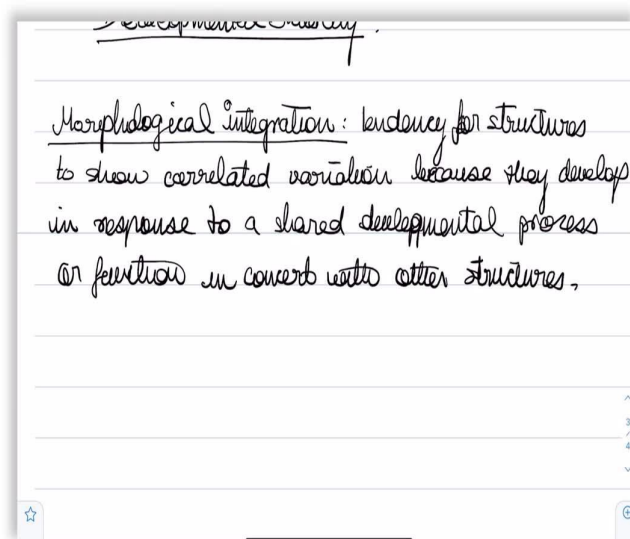 Developmental
Morphological integration: tendency for structures
to show correlated variation because they develop
in response to a shared developmental process
or function in concert with other structures.
3
4